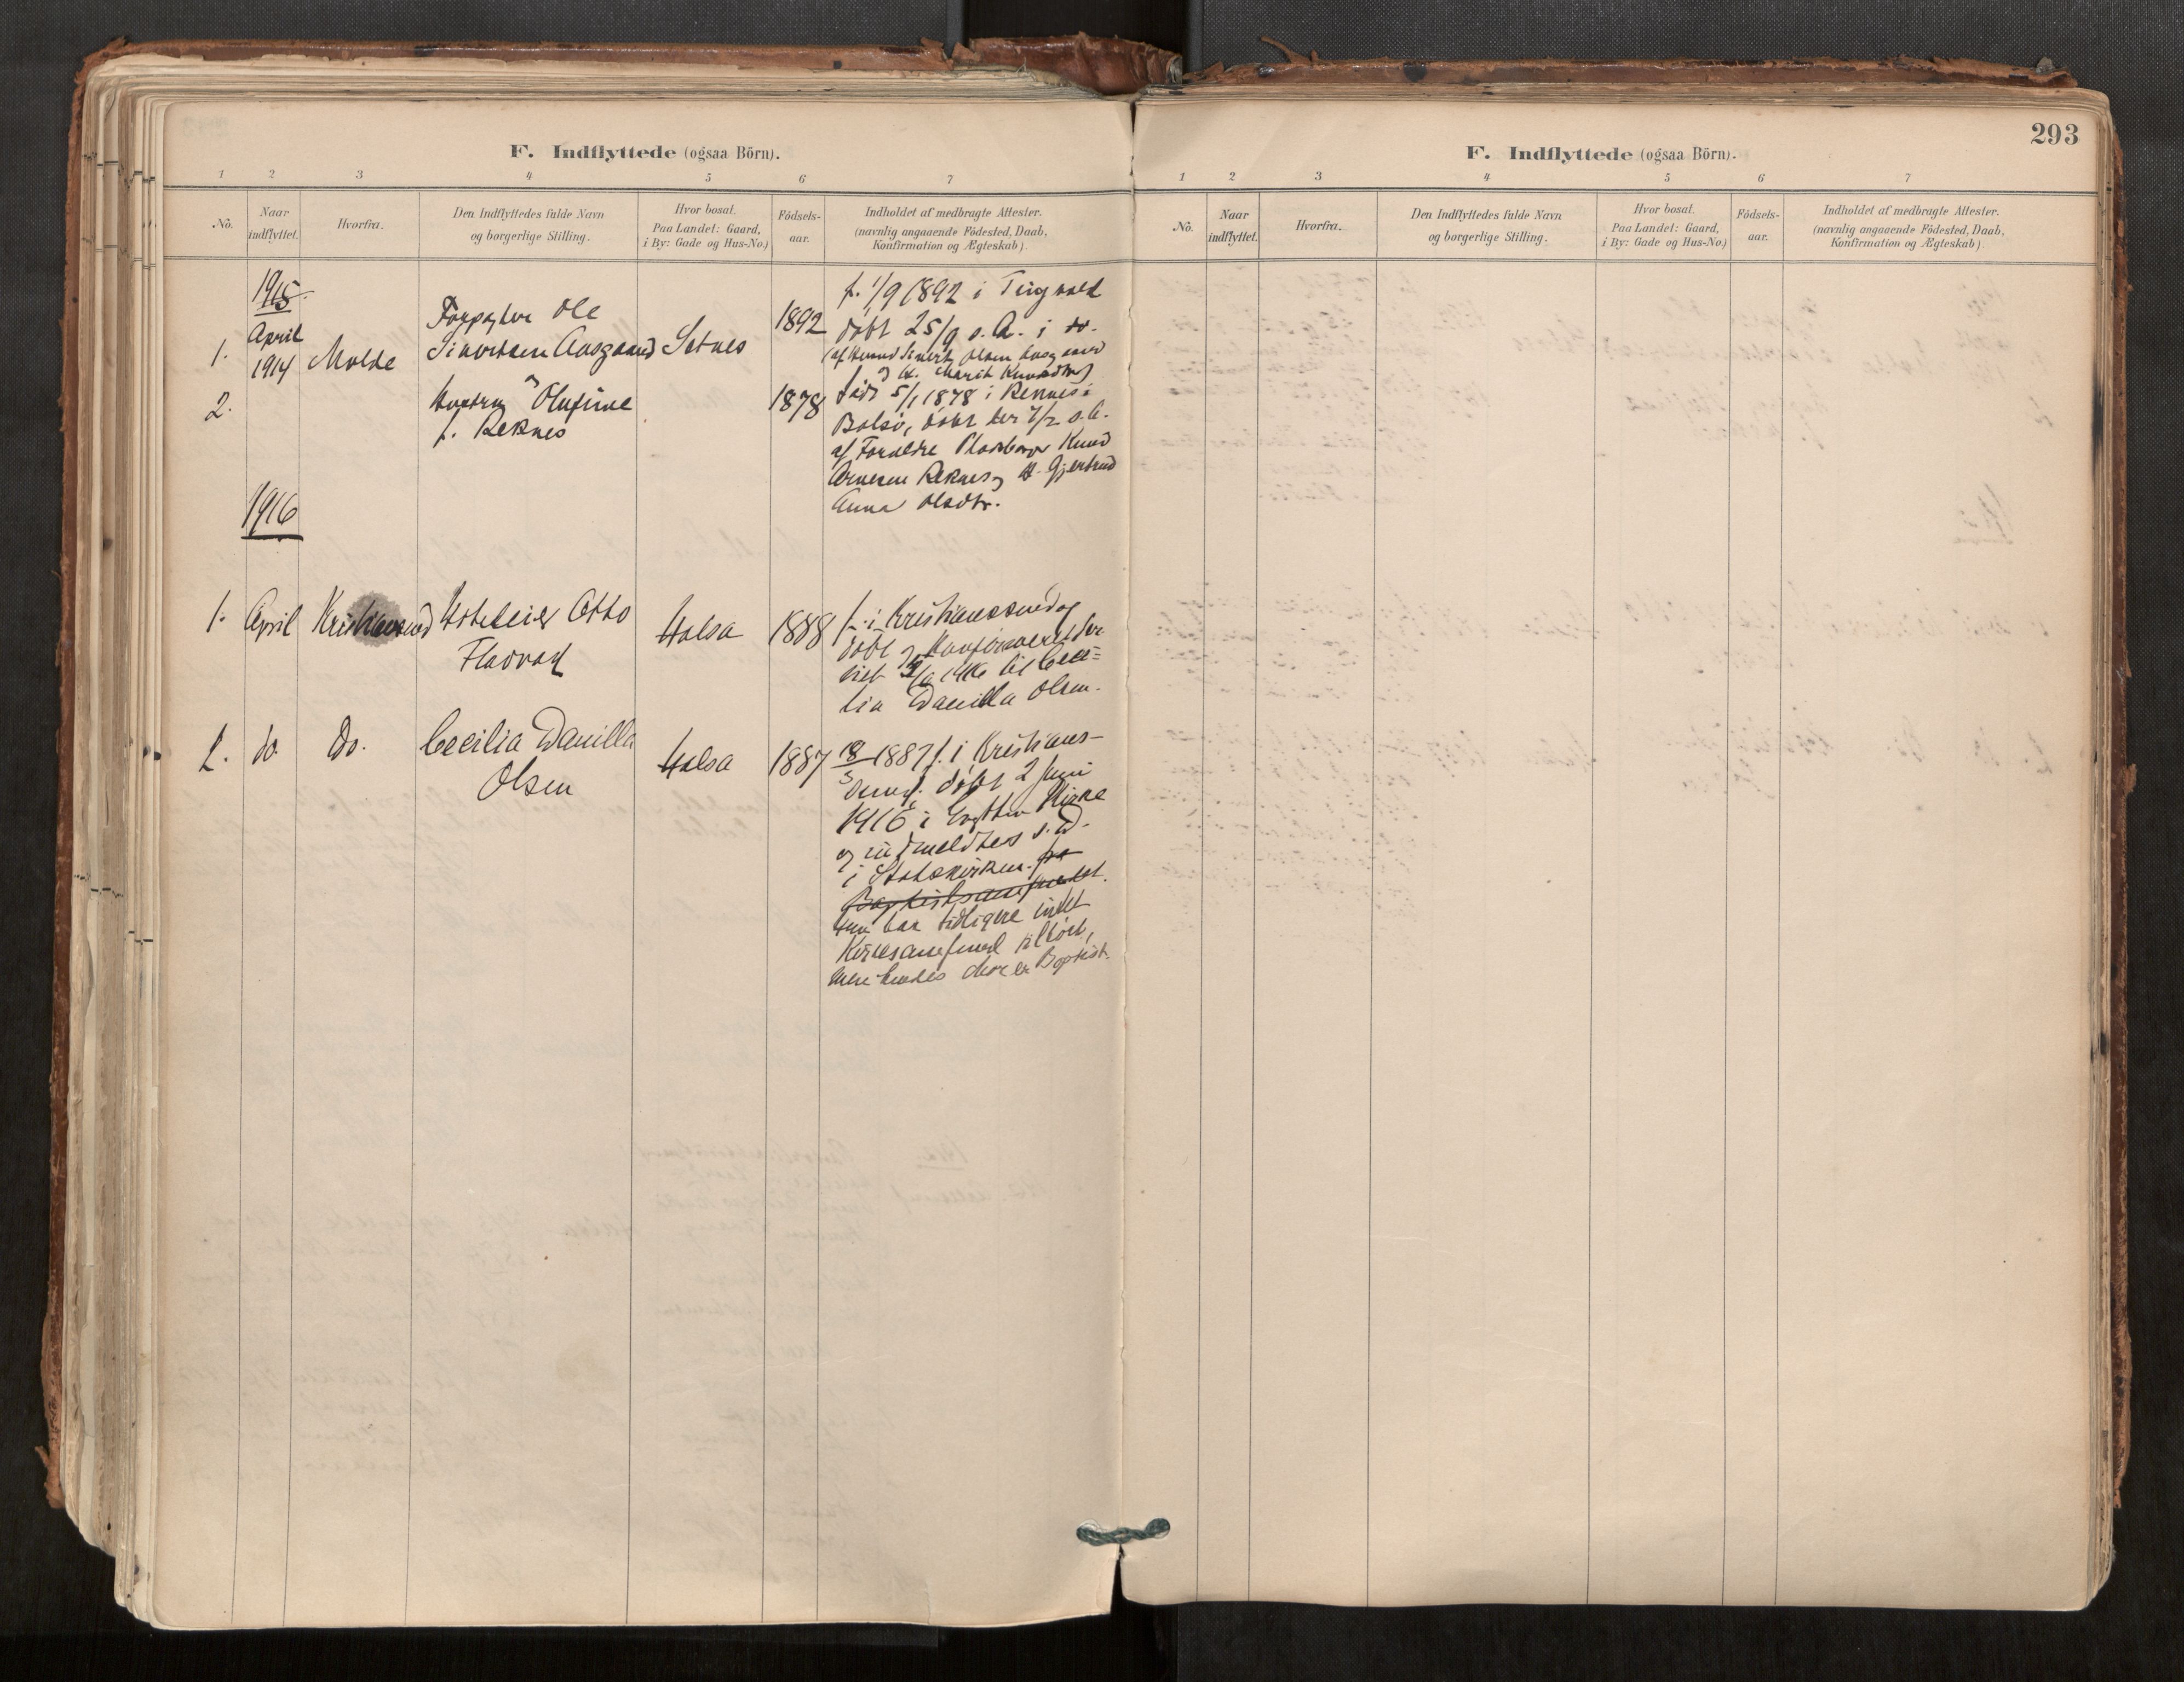 293
F. Indflyttede (ogsaa Börn).
1 2 3 4 5 6 7
No.
Naar indflyttet.
Hvorfra.
Den Indflyttedes fulde Navn
og borgerlige Stilling.
Hvor bosat.
Paa Landet: Gaard,
i By: Gade og Hus-No.)
Födsels-
aar.
Indholdet af medbragte Attester.
(navnlig angaaende Födested, Daab,
Konfirmation og Ægteskab).
1915
1.
April
1914
Molde
Forpagter Ole
Sivertsen Aasgaard
Setnes
1892
f. 1/9 1892 i Tingvold
døbt 25/9 s. A. i do.
2.
Hustru Olufine
f. Reknes
1878
født 5/1 1878 i Reknes i
Bolsø, døbt der 7/2 s. A.
af Forældre Knud
Arnesen Reknes og H. Gjertrud
Anna Olsdtr.
1916
1.
April
Kristiansund
Otto
Fladvad
Halsa
1888
f. i Kristianssund og
døbt og Konfirmeret der
viet 1916 til Ceci=
lia Danilla Olsen.
2.
do
Do.
Cecilia Danilla
Olsen
Halsa
1887
18/5 1887 f. i Kristians-
sund. døbt 2 Juni
1916 i Kirke
og indmeldtes s. D.
i Statskirken. fra
Baptistsamfundet.
Hun har tidligere intet
Kirkesamfund tilhørt,
men hendes er Baptist.
F. Indflyttede (ogsaa Börn).
1 2 3 4 5 6 7
No.
Naar indflyttet.
Hvorfra.
Den Indflyttedes fulde Navn
og borgerlige Stilling.
Hvor bosat.
Paa Landet: Gaard,
i By: Gade og Hus-No.)
Födsels-
aar.
Indholdet af medbragte Attester.
(navnlig angaaende Födested, Daab,
Konfirmation og Ægteskab).